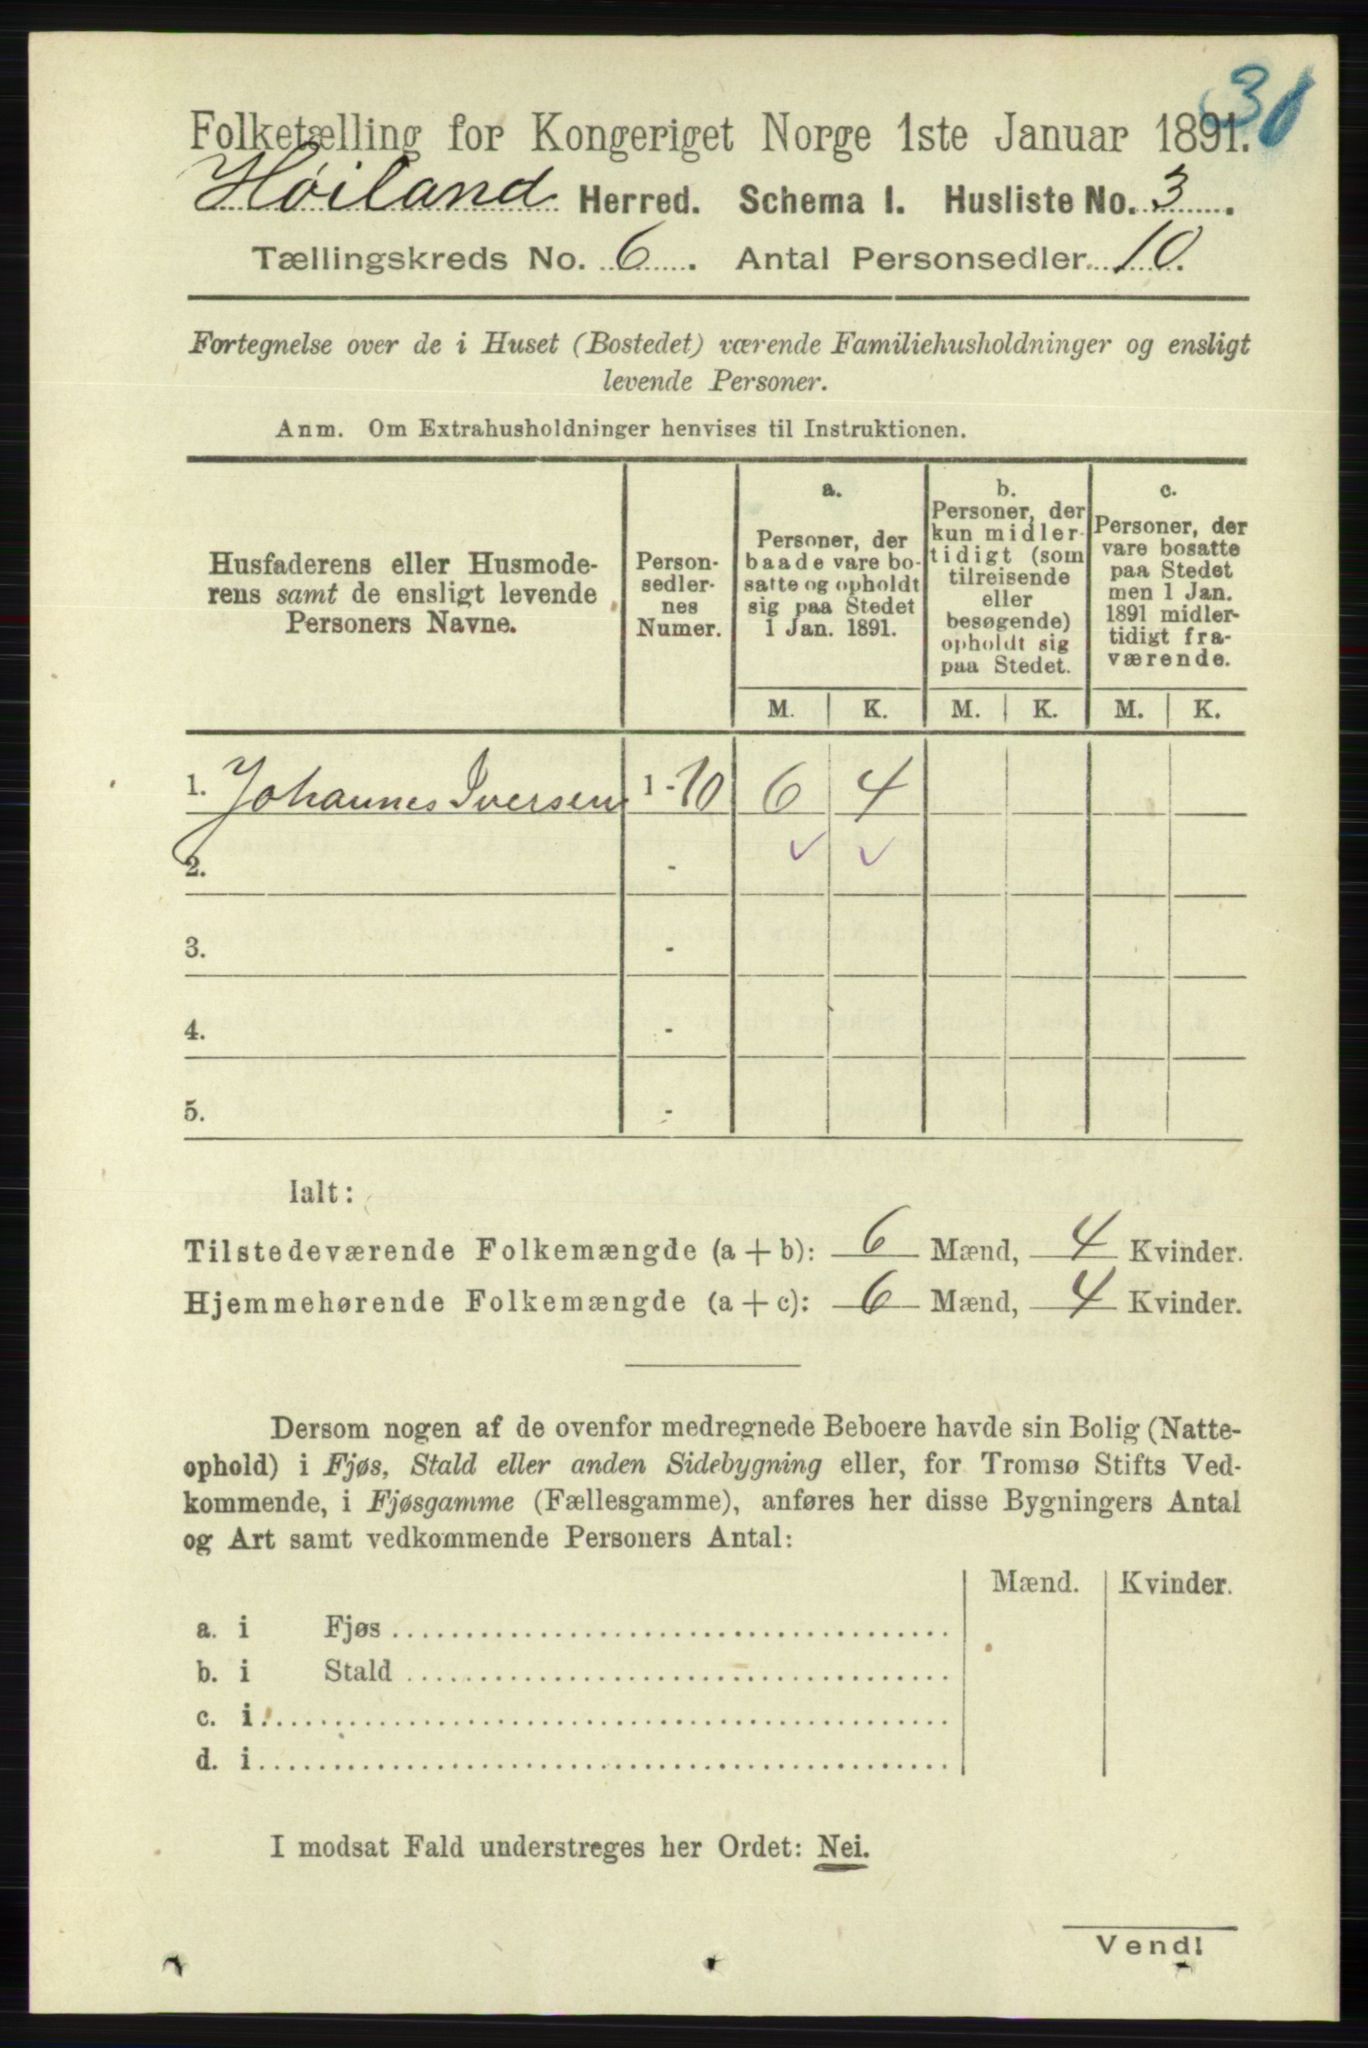 Folketælling for Kongeriget Norge 1ste Januar 1891.
Høiland Herred. Schema I. Husliste No. 3.
Tællingskreds No. 6. Antal Personsedler 10.
Fortegnelse over de i Huset (Bostedet) værende Familiehusholdninger og ensligt
levende Personer.
Anm. Om Extrahusholdninger henvises til Instruktionen.
Husfaderens eller Husmode-
rens samt de ensligt levende
Personers Navne.
Person-
sedler-
nes
Numer.
a.
Personer, der
baade vare bo-
satte og opholdt
sig paa Stedet
1 Jan. 1891.
b.
Personer, der
kun midler-
tidigt (som
tilreisende
eller
besøgende)
opholdt sig
paa Stedet.
c.
Personer, der
vare bosatte
paa Stedet
men 1 Jan.
1891 midler-
tidigt fra-
værende.
M. K. M. K. M. K.
1. Johannes Iversen 1-10 6 4
2. -
3. -
4. -
5. -
Ialt:
Tilstedeværende Folkemængde (a + b): 6 Mænd, 4 Kvinder.
Hjemmehørende Folkemængde (a + c): 6 Mænd, 4 Kvinder.
Dersom nogen af de ovenfor medregnede Beboere havde sin Bolig (Natte-
ophold) i Fjøs, Stald eller anden Sidebygning eller, for Tromsø Stifts Ved-
kommende, i Fjøsgamme (Fællesgamme), anføres her disse Bygningers Antal
og Art samt vedkommende Personers Antal:
Mænd. Kvinder.
a. i Fjøs
b. i Stald
c. i
d. i
I modsat Fald understreges her Ordet: Nei.
Vend!